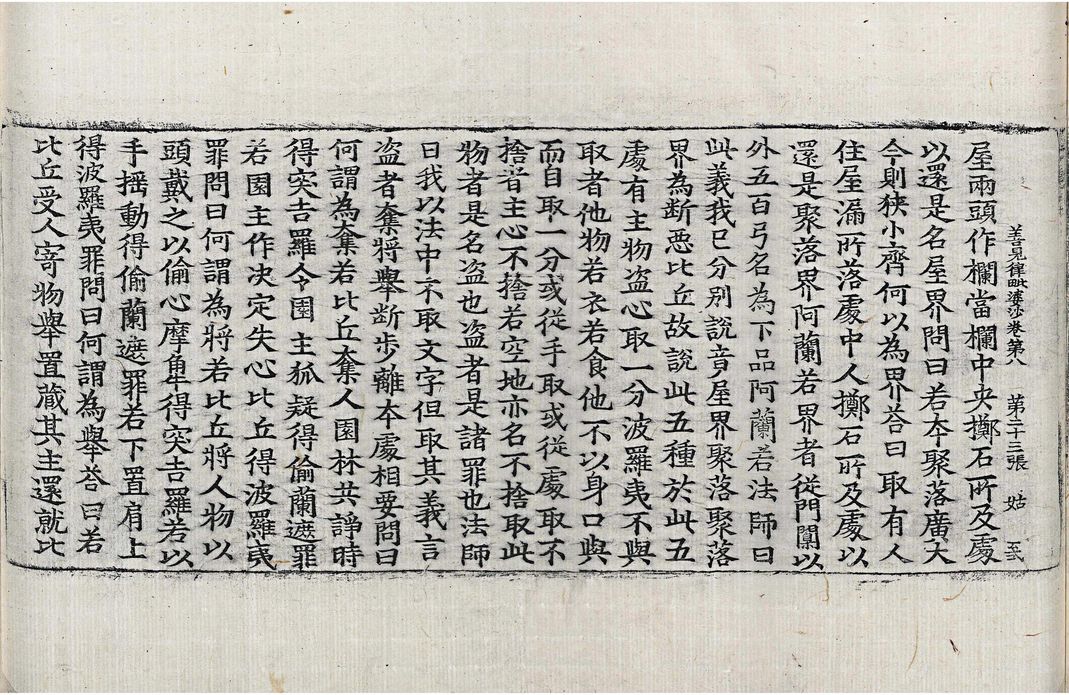 善見律毗婆沙卷第八 第二十三張 姑
屋兩頭作欄當欄中央擲石所及處
以還是名屋界問曰若本聚落廣大
今則狹小齊何以為界荅曰取有人
住屋漏所落處中人擲石所及處以
還是聚落界阿蘭若界者從門閫以
外五百弓名為下品阿蘭若法師曰
此義我已分別說竟屋界聚落聚落
界為斷惡比丘故說此五種於此五
處有主物盜心取一分波羅夷不與
取者他物若衣若食他不以身口與
而自取一分或從手取或從處取不
捨者主心不捨若空地亦名不捨取此
物者是名盜也盜者是諸罪也法師
曰我以法中不取文字但取其義言
盜者奪將舉斷步離本處相要問曰
何謂為奪若比丘奪人園林共諍時
得突吉羅令園主狐疑得偷蘭遮罪
若園主作決定失心比丘得波羅夷
罪問曰何謂為將若比丘將人物以
頭戴之以偷心摩觸得突吉羅若以
手搖動得偷蘭遮罪若下置肩上
得波羅夷罪問曰何謂為舉荅曰若
比丘受人寄物舉置藏其主還就比